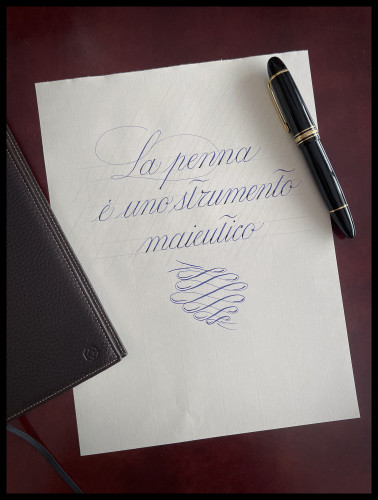 La penna
è uno strumento
maieutico